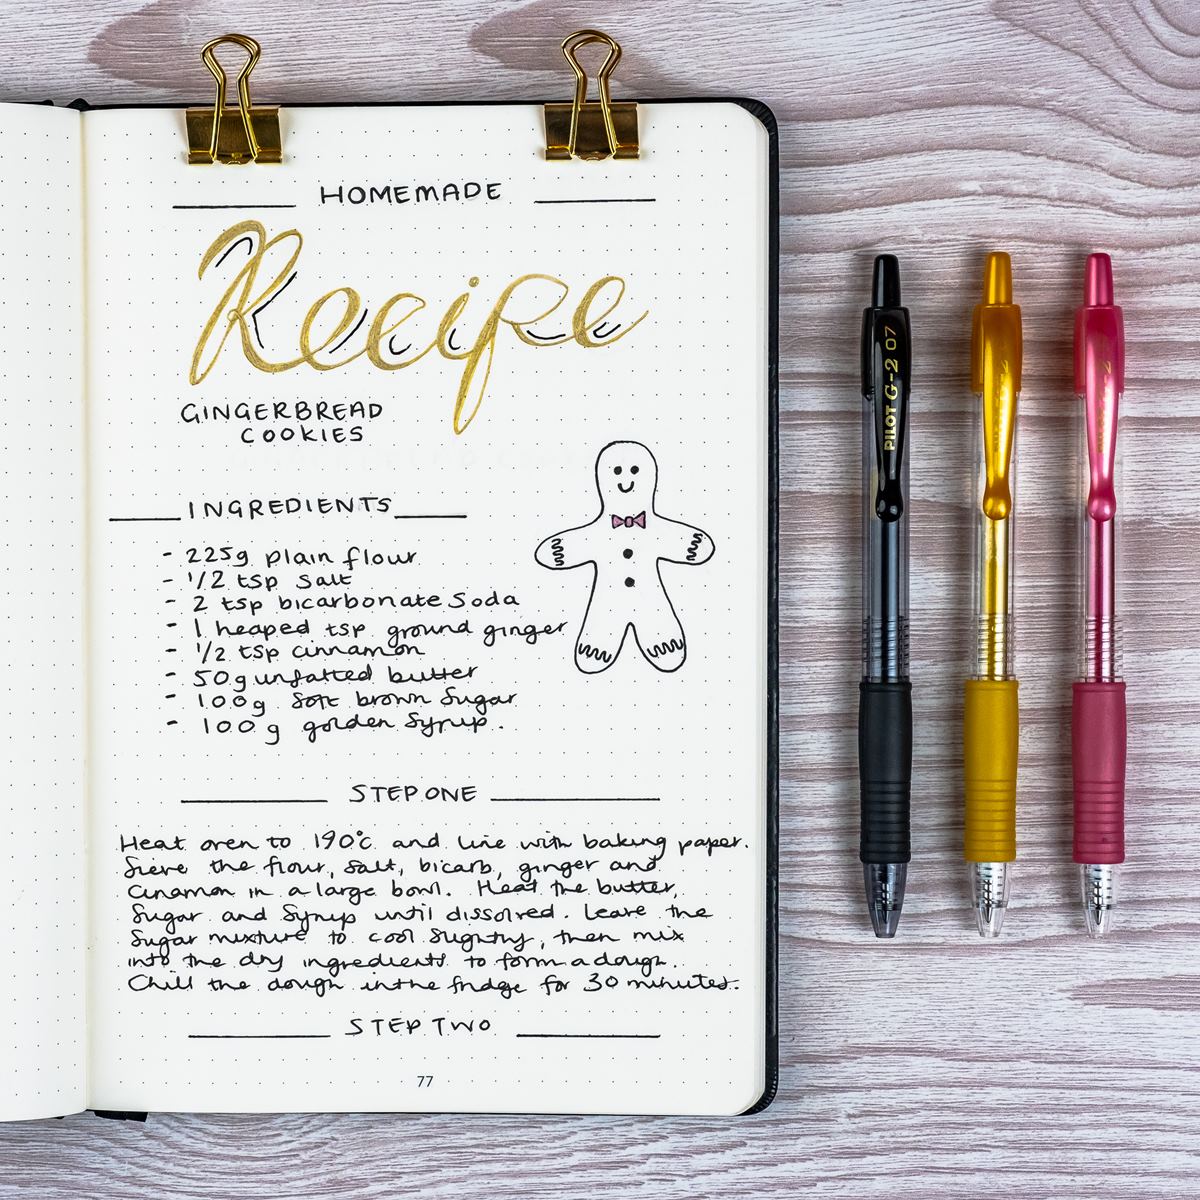 HOMEMADE
Recipe
GINGERBREAD
COOKIES
INGREDIENTS
- 225g plain flour
- 1/2 tsp salt
- 2 tsp bicarbonate Soda
- 1 heaped tsp ground ginger
- 1/2 tsp cinnamon
- 50g unsalted butter
- 100g Soft brown Sugar
- 100g golden Syrup.
STEP ONE
Heat oven to 190°c and line with baking paper.
Sieve the flour, Salt, bicarb, ginger and
Cinamon in a large bowl. Heat the butter,
Sugar and Syrup until dissolved. Leave the
Sugar mixture to cool Slightly, then mix
into the dry ingredients to form a dough.
Chill the dough in the fridge for 30 minutes.
STEP TWO
77
PILOT G-2 07